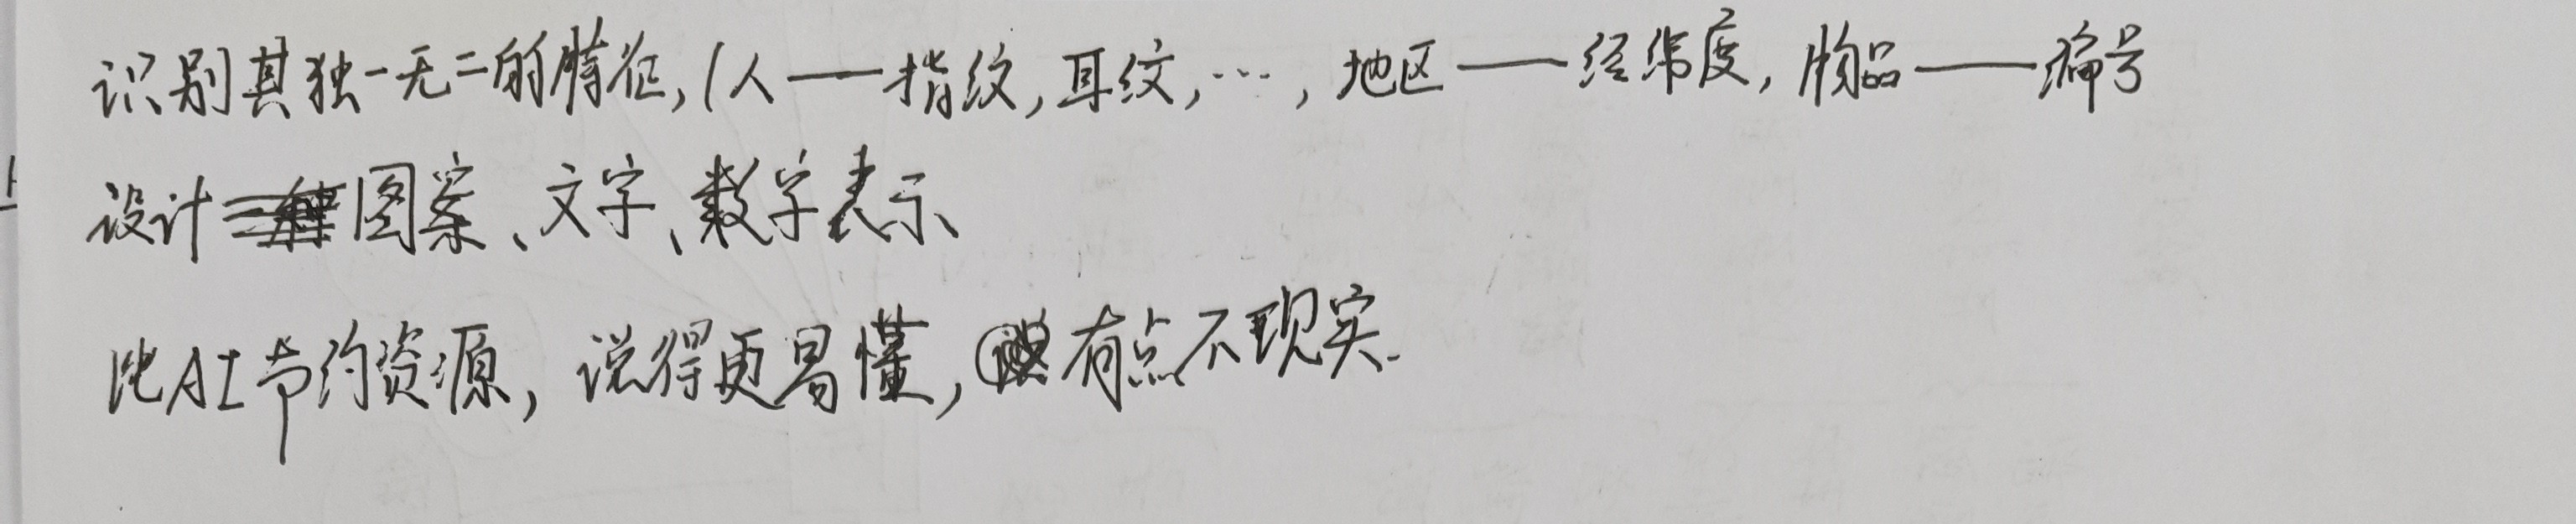 识别其独一无二的特征,(人——指纹,耳纹,…,地区——经纬度,物品——编号
设计图案、文字、数字表示、
比AI节约资源,说得更易懂,有点不现实.